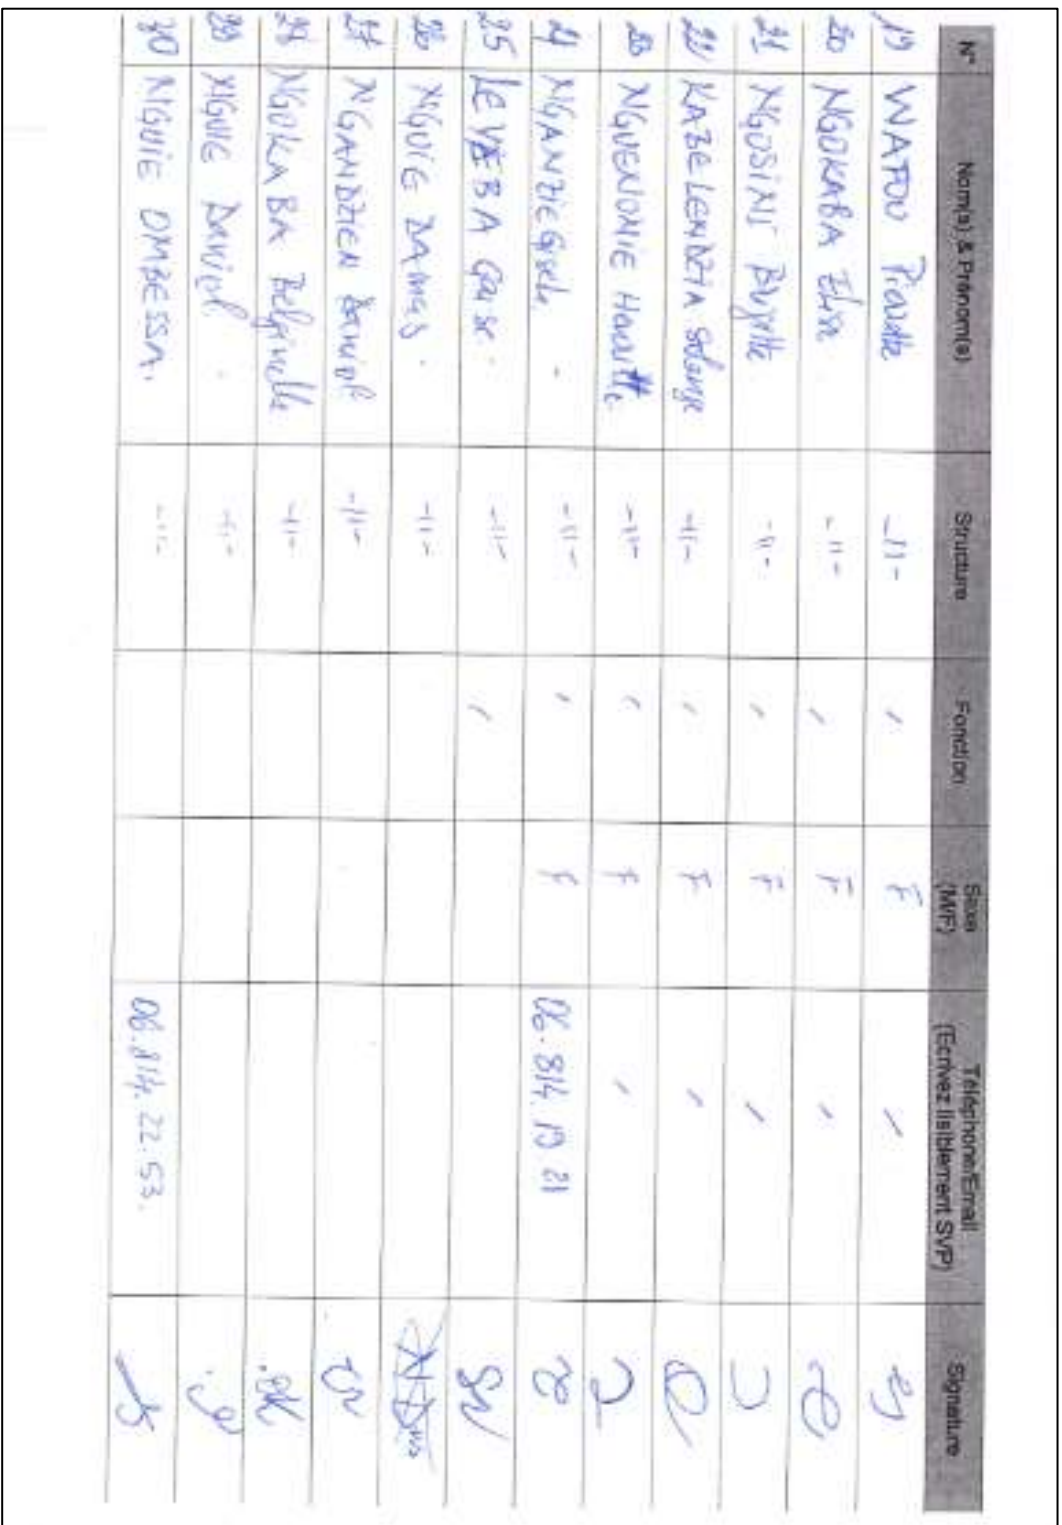 N° Nom(s) & Prénom(s) Structure Fonction Sexe (M/F) Téléphone/Email (Ecrivez lisiblement SVP) Signature
19 WATOU Pierrette -11- / F /
20 NGOKABA Elise -11- / F /
21 NGOSINI Brigitte -11- / F /
22 KABELENDZIA Solange -11- / F /
23 NGUENONIE Henriette -11- / F /
24 NGANZIE Gisele -11- / F 06.814.19 21
25 -11- /
26 NGUIE DAMAS -11-
27 NGANDZIEN Daniel -11-
28 NGOKABA Belginelle -11-
29 NGUIE Daniel -11-
30 NGUIE OMBESSA. -11- 06.814.22.53.